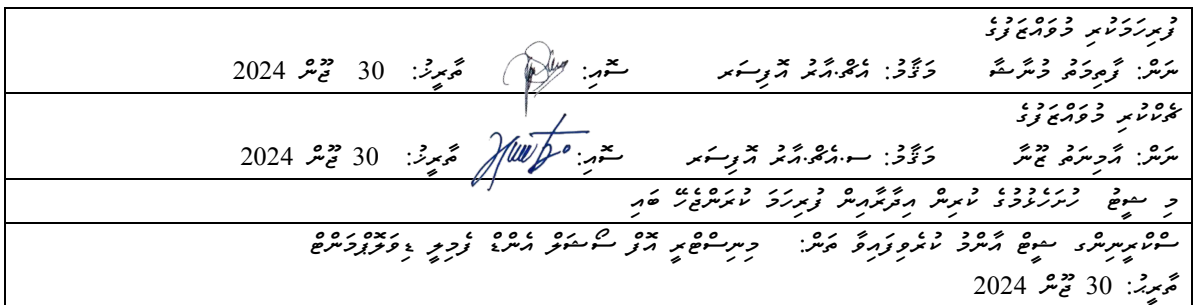 ފުރިހަމަކުރި މުވައްޒަފުގެ
ނަން: ފާތިމަތު މުނާޝާ މަޤާމު: އެޗް.އާރު އޮފިސަރ ސޮއި: ތާރީޚު: 30 ޖޫން 2024
ޗެކްކުރި މުވައްޒަފުގެ
ނަން: އާމިނަތު ޒޫނާ މަޤާމު: ސ.އެޗް.އާރު އޮފިސަރ ސޮއި: ތާރީޚު: 30 ޖޫން 2024
މި ޝީޓު ހުށަހެޅުމުގެ ކުރިން އިދާރާއިން ފުރިހަމަ ކުރަންޖެހޭ ބައި
ސްކްރީނިންގ ޝީޓް އާންމު ކުރެވިފައިވާ ތަން: މިނިސްޓްރީ އޮފް ސޯޝަލް އެންޑް ފެމިލީ ޑިވަލޮޕްމަންޓް
ތާރީޙު: 30 ޖޫން 2024